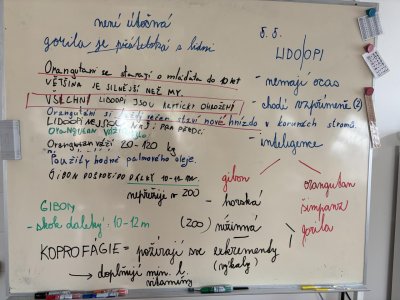 není útočná
gorila je přátelská s lidmi
Orangutani se starají o mláďata do 10 let
VĚTŠINA JE SILNĚJŠÍ NEŽ MY.
VŠICHNI LIDOOPI JSOU KRITICKY OHROŽENÍ
Orangutani si každý večer staví nové hnízdo v korunách stromů.
LIDOOPI
ORANGUTAN
Orangutan váží 20-120 kg
Použily hodně palmového oleje.
GIBON DALEKÝ 10-12 m
nepřežije v 200
GIBON
- skok daleký: 10-12m
KOPROFÁGIE = požírají své exkrementy
(výkaly)
→ doplňují min. l.
vitamíny
5. 5.
LIDOOPI
- nemají ocas
- chodí vzpřímeně (2)
- inteligence
gibon
orangutan
šimpanz
gorila
- horská
(200) nížinná